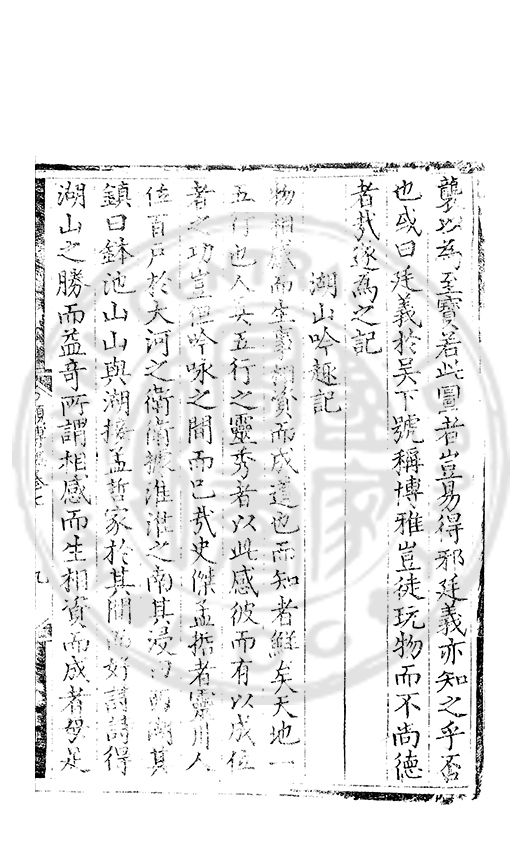 襲以為至寶若此圖者豈易得邪廷義亦知之乎否
也或曰廷義於吳下號稱博雅豈徒玩物而不尚德
者哉遂為之記
湖山吟趣記
物相感而生事相資而成道也而知者鮮矣天地一
五行也人具五行之靈秀者以此感彼而有以成位
者之功豈但吟咏之間而已哉史傑孟哲者靈川人
位百戶於大河之衛衛據淮淮之南其浸曰西湖其
鎮曰鉢池山山與湖接孟哲家於其間而好詩詩得
湖山之勝而益奇所謂相感而生相資而成者學是
九